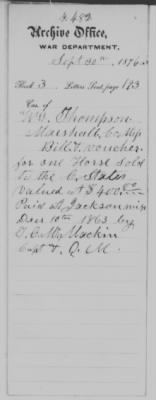 2,482
Archive Office,
WAR DEPARTMENT,
Sept 30th, 1876
Book 3 Letters Sent, page 183
Case of
W. C. Thompson
Marshall, Co Mip
Bill & voucher
for one Horse Sold
to the C. States
valued at $400.00
Paid at Jackson mip
Decr 10th 1863 by
T. C. Mackin
Capt & Q. M.